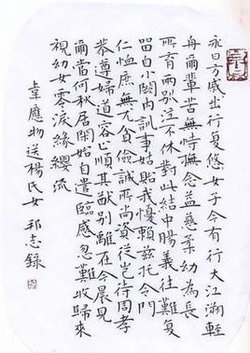 永日方戚出行复悠女子今有行大江溯輕
舟爾輩苦無恃撫念益慈柔幼為長
所育兩別泣不休對此結中腸義往難复
留自小闕內訓事姑貽我憂賴兹托令門
仁恤庶無尤貧儉誠所尚資從豈待周孝
恭遵婦道容止順其猷別離在今晨見
爾當何秋居閑始自遣臨感忽難收歸來
視幼女零淚緣纓流
韋應物送楊氏女 志錄